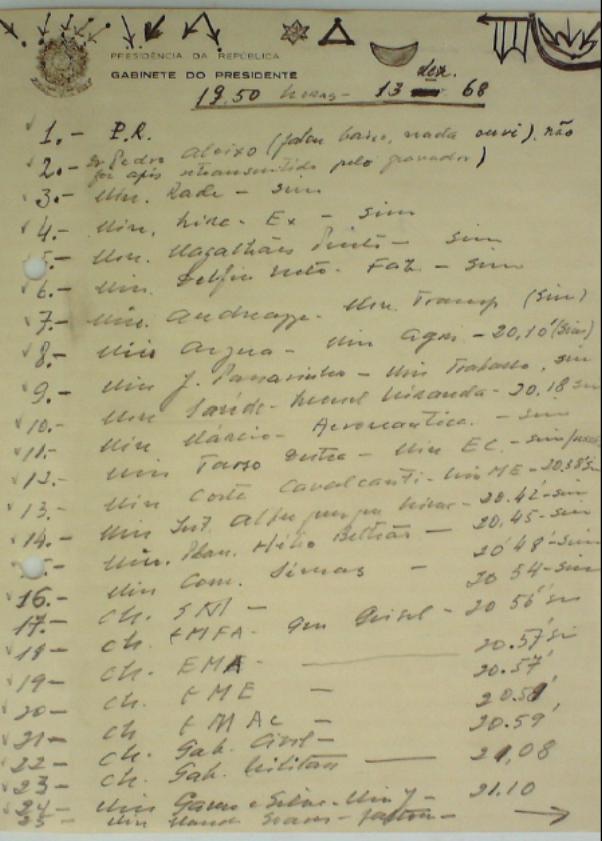 PRESIDÊNCIA DA REPÚBLICA
GABINETE DO PRESIDENTE
dez.
19.50 horas - 13 68
1.- P.R.
2.- Sr Pedro Aleixo (falou baixo, nada ouvi), não
foi após retransmitido pelo gravador)
3.- Min. Rade - sim
4.- Min. Lira - Ex - sim
5.- Min. Magalhães Pinto - sim
6.- Min. Delfim Neto - Faz - sim
7.- Min. Andreazza - Min. Transp (sim)
8.- Min Arzua - Min Agri - 20,10' (sim)
9.- Min J. Passarinho - Min Trabalho, sim
10.- Min Saúde - Leonel Miranda - 20.18 sim
11.- Min Márcio - Aeronautica. - sim
12.- Min Tarso Dutra - Min EC. - sim
13.- Min Costa Cavalcanti - Min ME - 20,38' sim
14.- Min Int. Albuquerque Lima - 20.42' - sim
Min. Plan. Hélio Beltrão - 20,45 - sim
16.- Min Com. Simas - 20 48' - sim
17.- Ch. SNI - 20 54 - sim
18- Ch. EMFA - Gen Geisel - 20 56' sim
19- Ch. EMA - 20.57' sim
20- Ch. EME - 20.57'
21- Ch EMAe - 20.58'
22- Ch. Gab. Civil - 20.59'
23- Ch. Gab. Militar 21,08
24- Min Gama e Silva - Min J - 21.10
25-